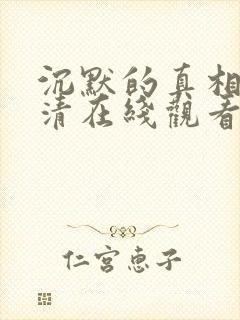 沉默的真相
清在綫觀看
仁宮惠子